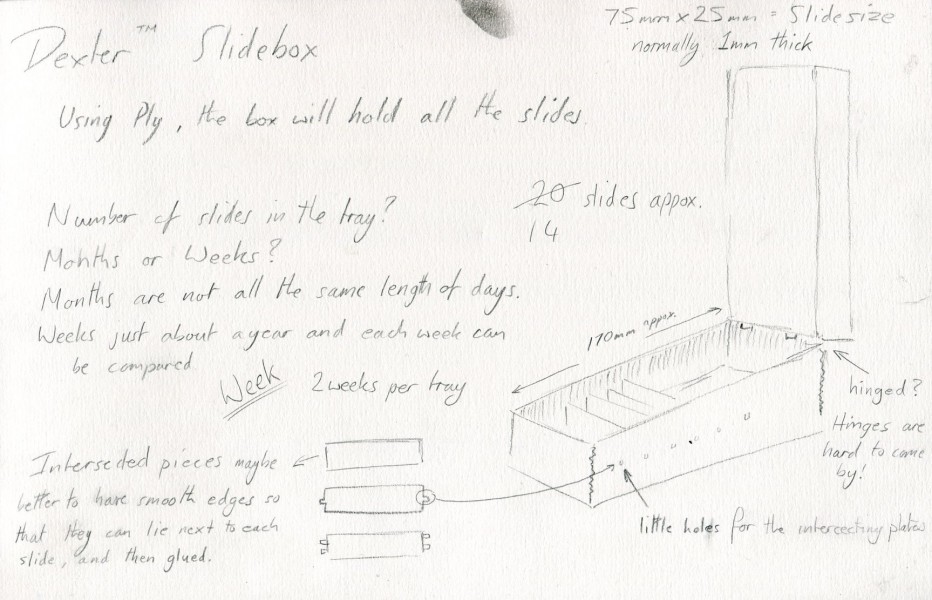 Dexter™ Slidebox
75mm x 25mm = Slide size
normally 1mm thick
Using Ply, the box will hold all the slides.
Number of slides in the tray?
20 slides appox.
14
Months or Weeks?
Months are not all the same length of days.
Weeks just about a year and each week can
be compared
Week 2 weeks per tray
170mm appox.
hinged?
Hinges are
hard to come
by!
Interseded pieces maybe
better to have smooth edges so
that they can lie next to each
slide, and then glued.
little holes for the intercecting plates